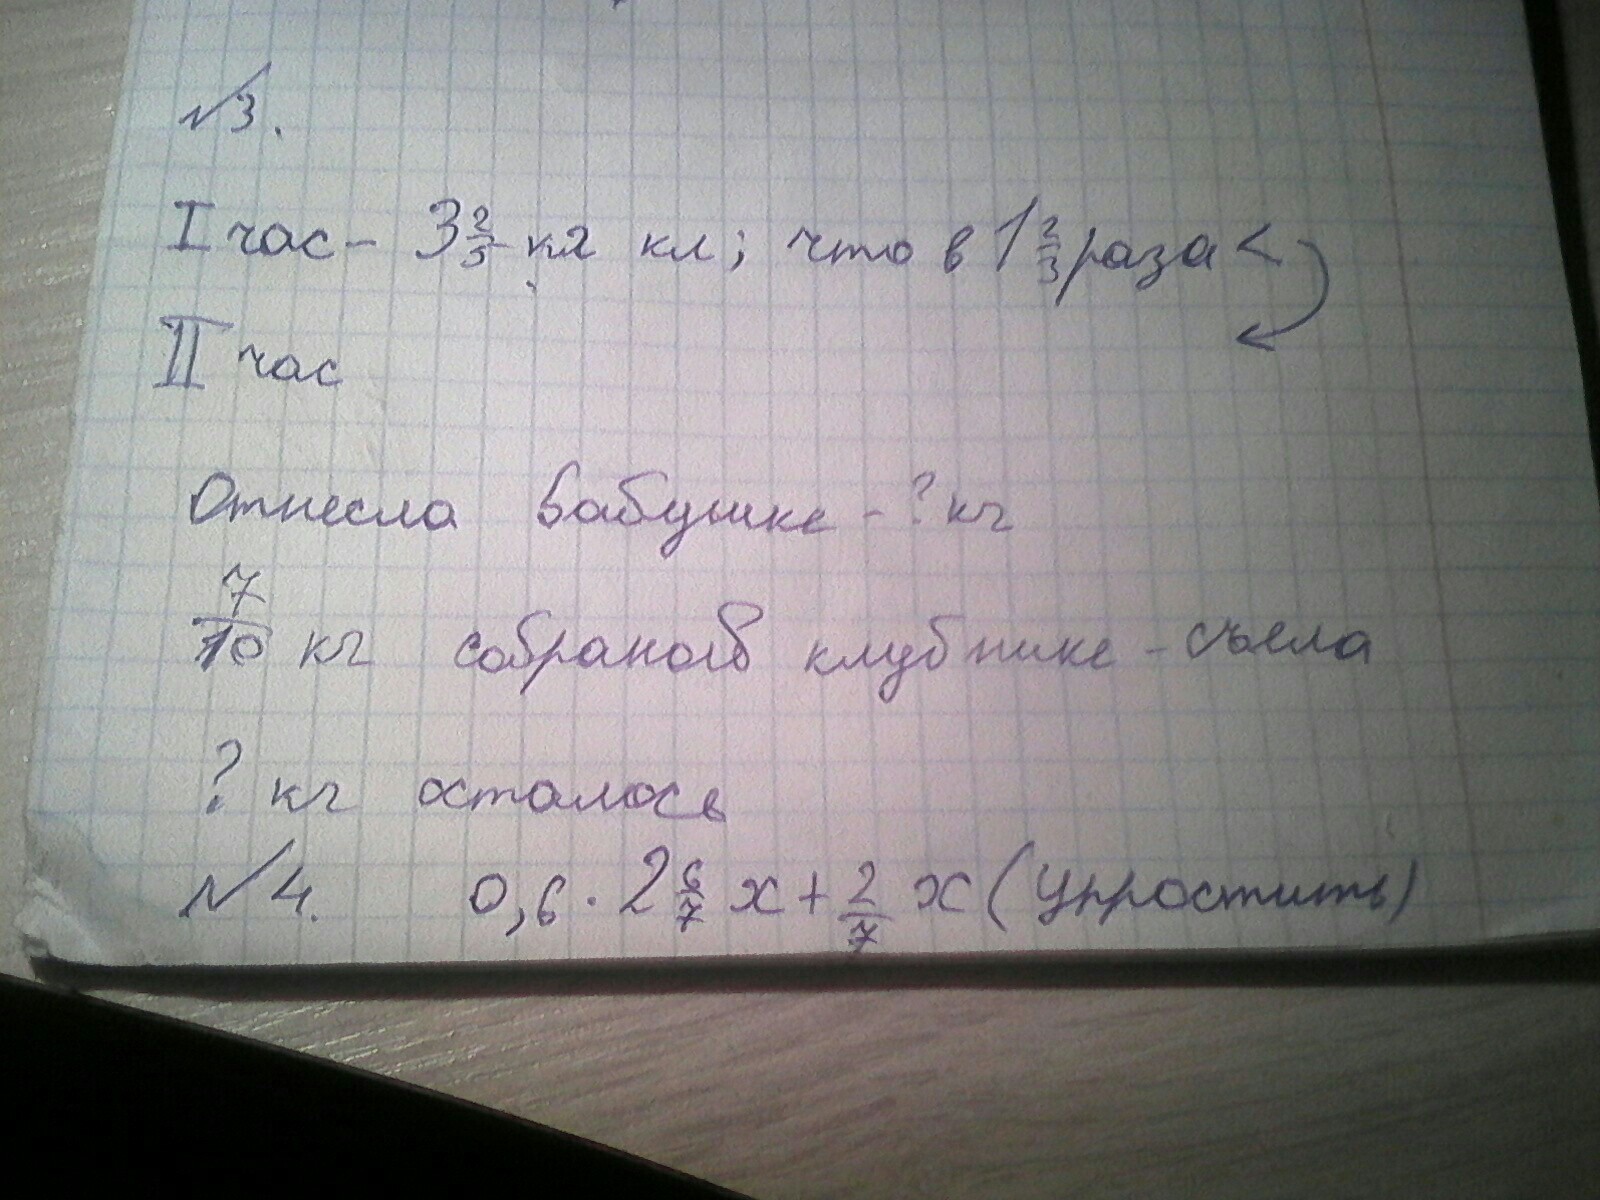 №3.
I час - 3 2/3 кл кл; что в 1 2/3 раза <
II час
Отнесла бабушке - ? кг
7/10 кг собраной клубнике - съела
? кг осталось
№4. 0,6 · 2 6/7 х + 2/7 х (Упростить)